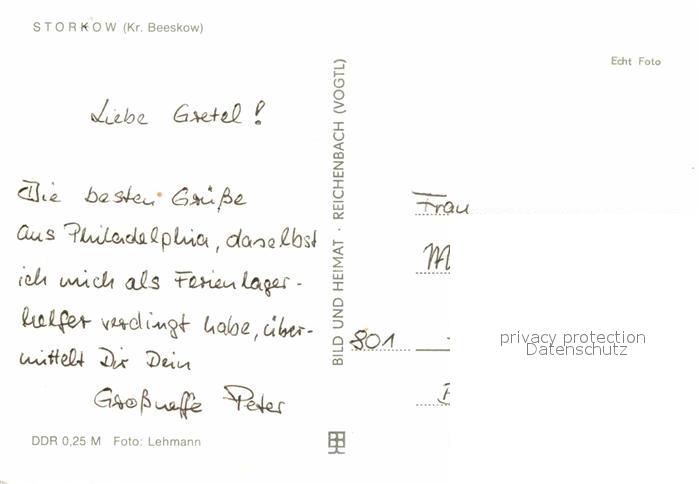 STORKOW (Kr. Beeskow)
Echt Foto
Liebe Gretel!
Die besten Grüße
aus Philadelphia, daselbst
ich mich als Ferienlager-
helfer verdingt habe, über-
mittelt Dir Dein
Großneffe Peter
DDR 0,25 M Foto: Lehmann
BILD UND HEIMAT · REICHENBACH (VOGTL)
Frau
M
801
privacy protection
Datenschutz